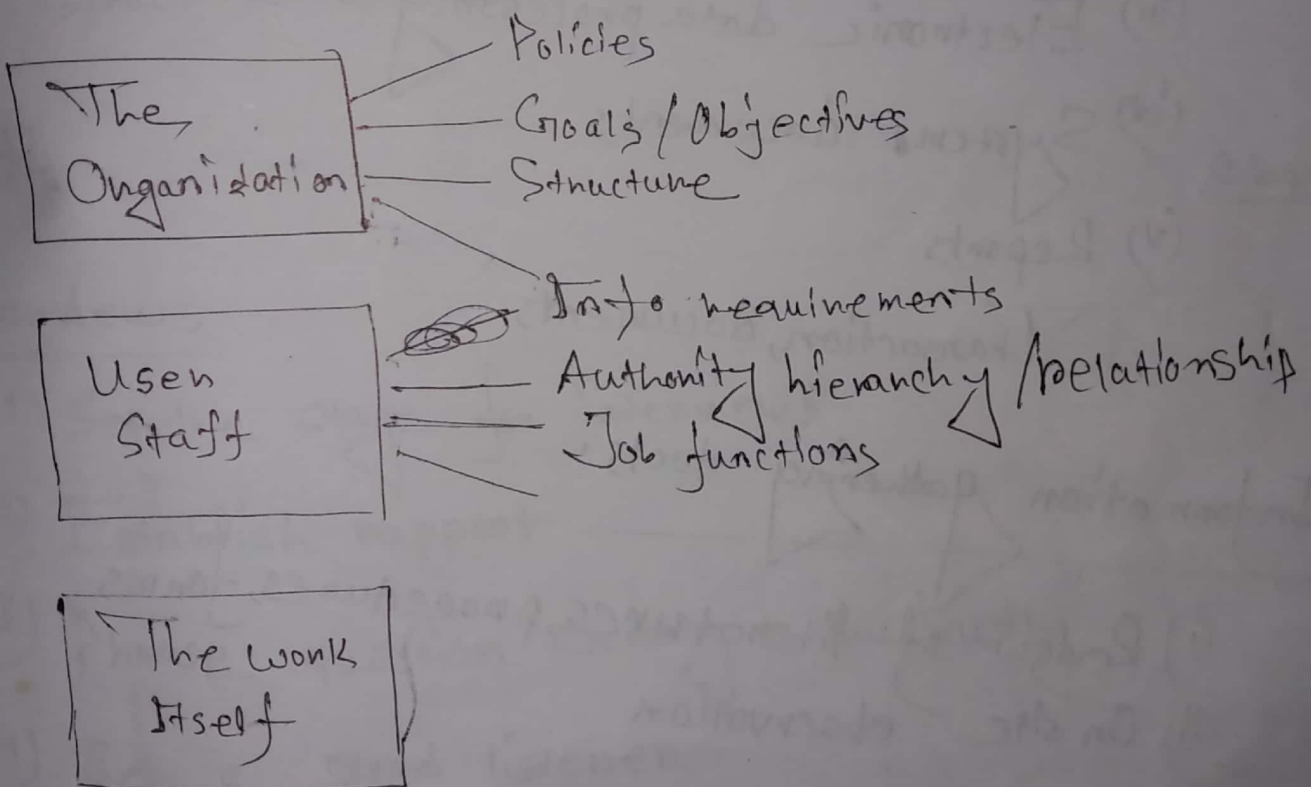 Policies
The
Organization
Goals / Objectives
Structure
Info requirements
User
Staff
Authority hierarchy / relationship
Job functions
The work
Itself